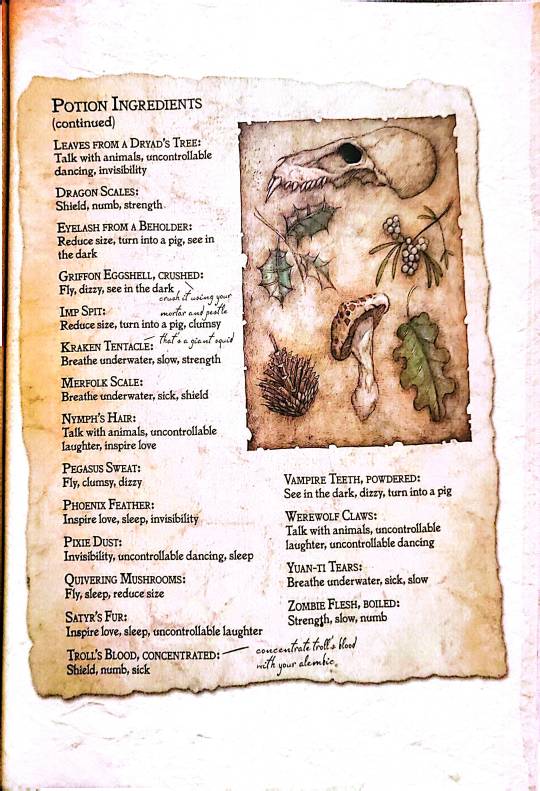 Potion Ingredients
(continued)
Leaves from a Dryad's Tree:
Talk with animals, uncontrollable
dancing, invisibility
Dragon Scales:
Shield, numb, strength
Eyelash from a Beholder:
Reduce size, turn into a pig, see in
the dark
Griffon Eggshell, crushed:
Fly, dizzy, see in the dark
crush it using your
mortar and pestle
Imp Spit:
Reduce size, turn into a pig, clumsy
Kraken Tentacle:
that's a giant squid
Breathe underwater, slow, strength
Merfolk Scale:
Breathe underwater, sick, shield
Nymph's Hair:
Talk with animals, uncontrollable
laughter, inspire love
Pegasus Sweat:
Fly, clumsy, dizzy
Phoenix Feather:
Inspire love, sleep, invisibility
Pixie Dust:
Invisibility, uncontrollable dancing, sleep
Quivering Mushrooms:
Fly, sleep, reduce size
Satyr's Fur:
Inspire love, sleep, uncontrollable laughter
Troll's Blood, concentrated:
Shield, numb, sick
concentrate troll's blood
with your alembic.
Vampire Teeth, powdered:
See in the dark, dizzy, turn into a pig
Werewolf Claws:
Talk with animals, uncontrollable
laughter, uncontrollable dancing
Yuan-ti Tears:
Breathe underwater, sick, slow
Zombie Flesh, boiled:
Strength, slow, numb